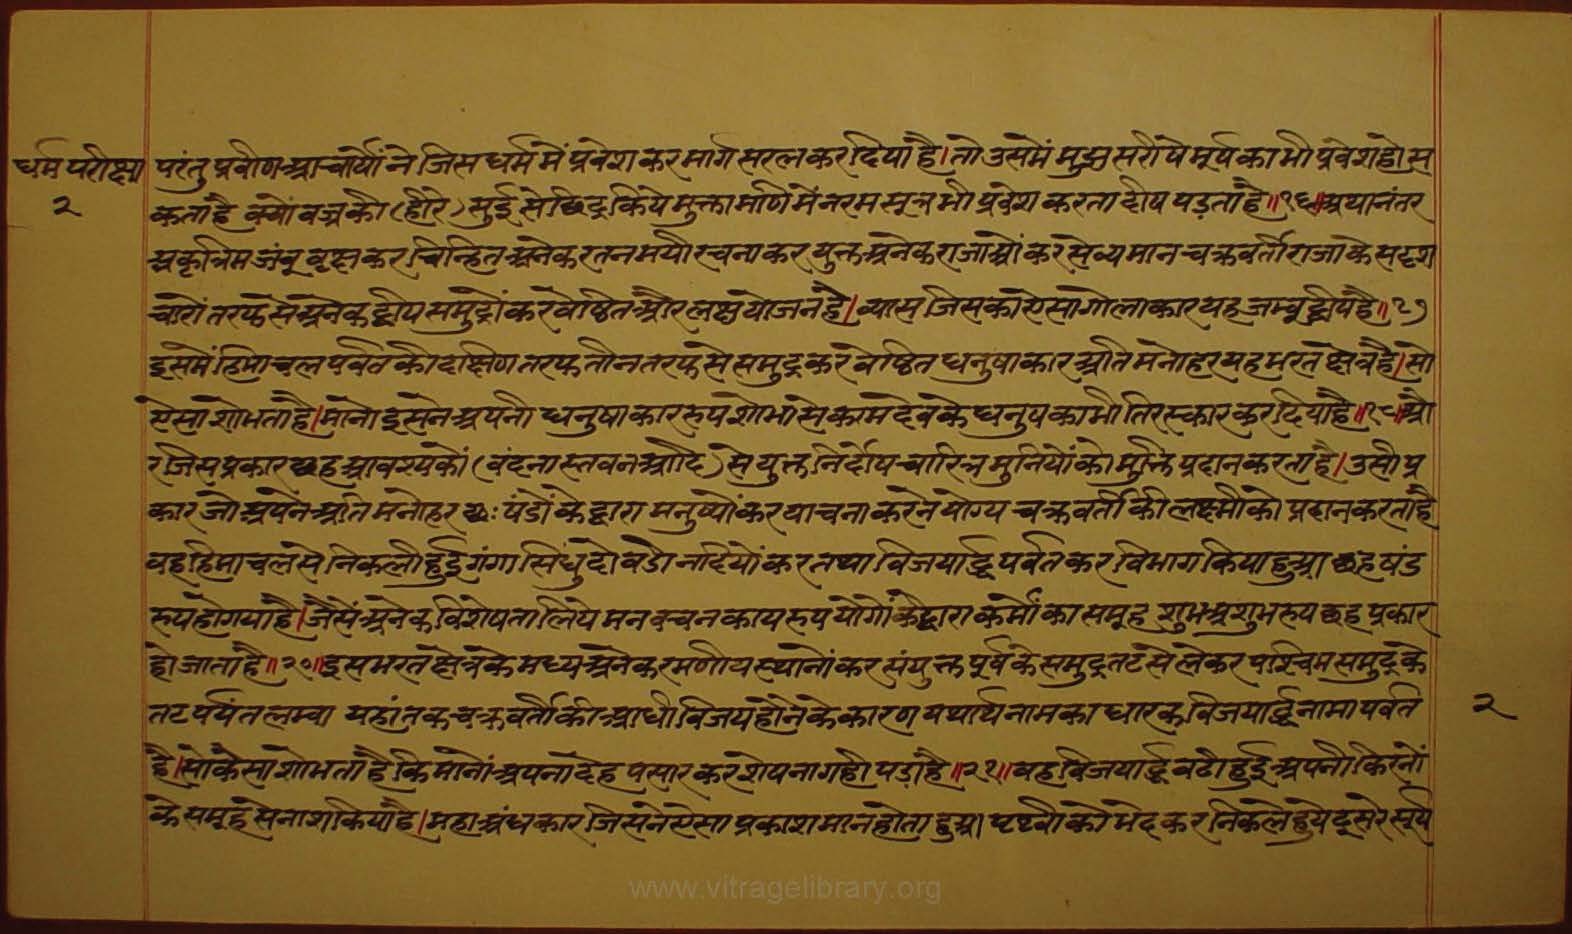 धर्म परीक्षा
२
परंतु प्रवीण आचार्यों ने जिस धर्म में प्रवेश कर मार्ग सरल कर दिया है। तो उसमें मुझ सरीषे मूर्ष का भी प्रवेश हो स
कता है क्यों वज्र की (हीरे) सुई से छिद्र किये मुक्ता मणि में नरम सूत्र भी प्रवेश करता दीष पड़ता है॥१६॥अथानंतर
अकृत्रिम जंबू वृक्ष कर चिन्हित अनेक रतनमयी रचना कर युक्त अनेक राजाओं कर सेव्यमान चक्रवर्ती राजा के सदृश
चारों तरफ से अनेक द्वीप समुद्रों कर वेष्ठित और लक्ष योजन है। व्यास जिसका ऐसा गोलाकार यह जम्बूद्वीप है॥१७
इसमें हिमाचल पर्वत की दक्षिण तरफ तीन तरफ से समुद्र कर वेष्ठित धनुषाकार अति मनोहर यह भरत क्षेत्र है। सो
ऐसा शोभता है। मानो इसने अपनी धनुषाकार रुप शोभा से कामदेव के धनुष का भी तिरस्कार कर दिया है॥१८॥औ
र जिस प्रकार छह आवश्यकों (वंदना स्तवन आदि) से युक्त निर्दोष चारित्र मुनियों को मुक्ति प्रदान करता है। उसी प्र
कार जो अपने अति मनोहर छः षंडों के द्वारा मनुष्यों कर याचना करने योग्य चक्रवर्ती की लक्ष्मी को प्रदान करता है
वह हिमाचल से निकली हुई गंगा सिंधु दो बडी नदियों कर तथा विजयार्द्ध पर्वत कर विभाग किया हुआ छह षंड
रुप हो गया है। जैसें अनेक विशेषता लिये मन वचन काय रुप योगों के द्वारा कर्मों का समूह शुभ अशुभ रुप छह प्रकार
हो जाता है॥२०॥इस भरत क्षेत्र के मध्य अनेक रमणीय स्थानों कर संयुक्त पूर्व के समुद्र तट से लेकर पश्चिम समुद्र के
तट पर्यंत लम्बा यहां तक चक्रवर्ती की आधी विजय होने के कारण यथार्थ नाम का धारक विजयार्द्ध नामा पर्वत
२
है। सो कैसा शोभता है कि मानों अपना देह पसार कर शेषनाग ही पड़ा है॥२१॥वह विजयार्द्ध बढी हुई अपनी किरनों
के समूह से नाश किया है। महा अंधकार जिसने ऐसा प्रकाशमान होता हुआ पृथ्वी को भेद कर निकले हुये दूसरे सूर्य
www.vitragelibrary.org